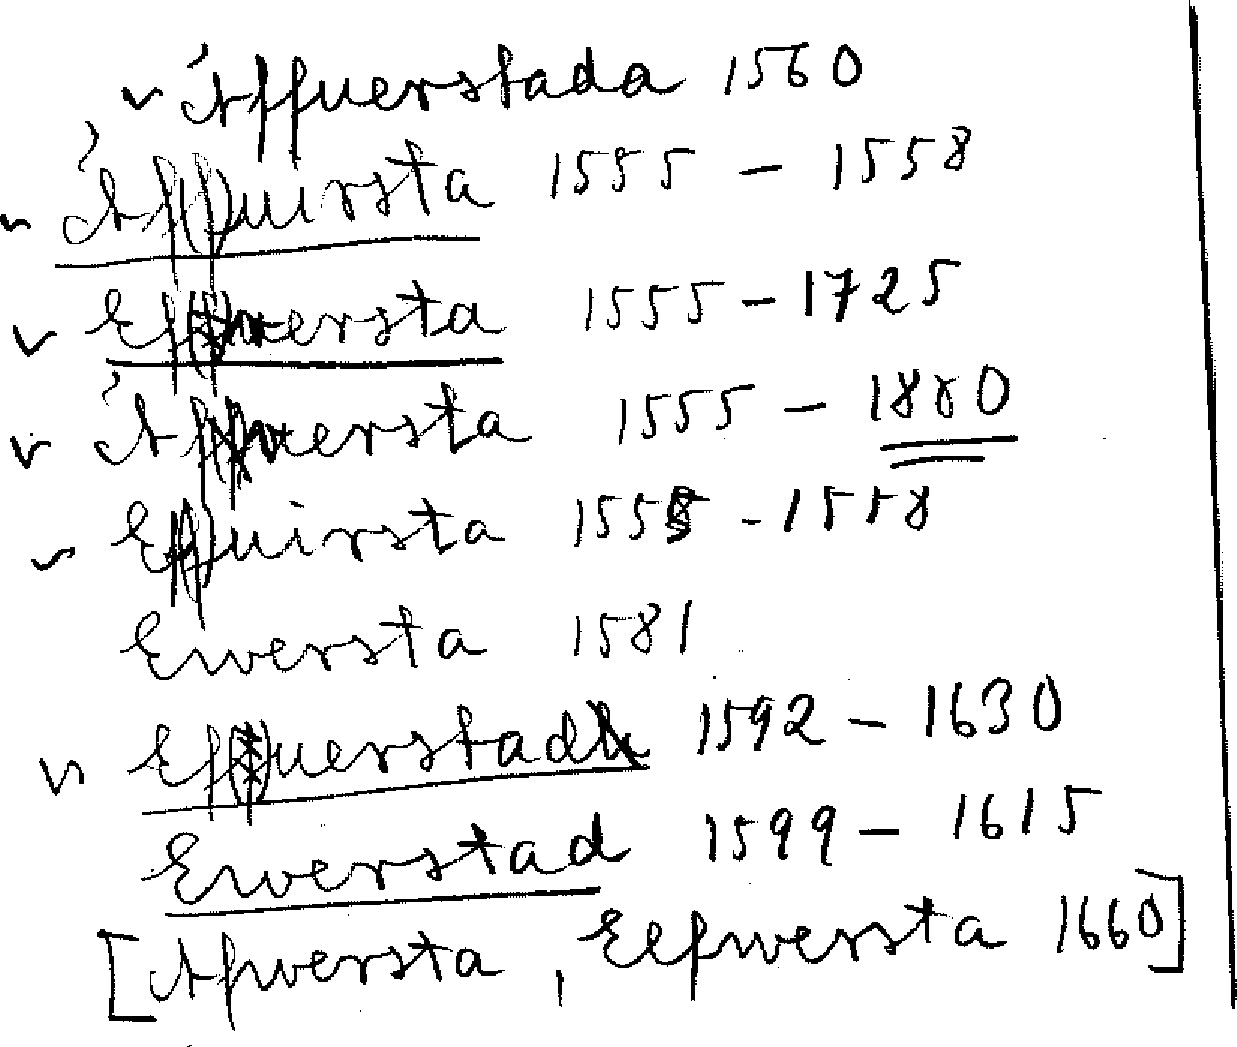 v Áffuerstada 1560
v Áf(f)uirsta 1555 - 1558
v Ef(f)uersta 1555 - 1725
v Áffuersta 1555 - 1880
v Ef(f)uirsta 1555 - 1558
Ewersta 1581
v Ef(f)uerstad 1592 - 1630
Ewerstad 1599 - 1615
[Afwersta, Eefwersta 1660]